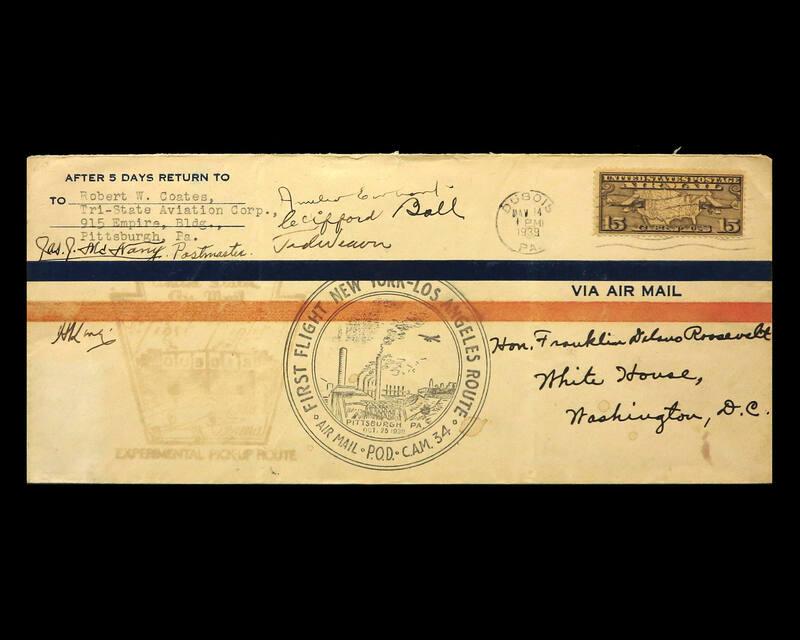 AFTER 5 DAYS RETURN TO
TO Robert W. Coates,
Tri-State Aviation Corp.,
915 Empire, Bldg.,
Pittsburgh, Pa.
Postmaster.
Clifford Ball
DUBOIS
MAY 14
1 PM
1939
PA.
UNITED STATES POSTAGE
AIR MAIL
15 CENTS 15
VIA AIR MAIL
United States
Air Mail
First Flight
DUBOIS
EXPERIMENTAL PICK-UP ROUTE
FIRST FLIGHT NEW YORK-LOS ANGELES ROUTE
PITTSBURGH PA
OCT. 25 1930
AIR MAIL • P.O.D. • C.A.M. 34
Hon. Franklin Delano Roosevelt
White House,
Washington, D.C.